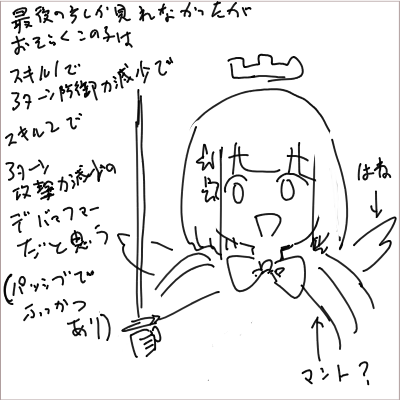 最後のちしか見れなかったが
おそらくこの子は
スキル1で
3ターン防御力減少で
スキル2で
3ターン
攻撃力減少の
デバッファー
だと思う
(パッシブで
ふっかつ
あり)
はね
マント?